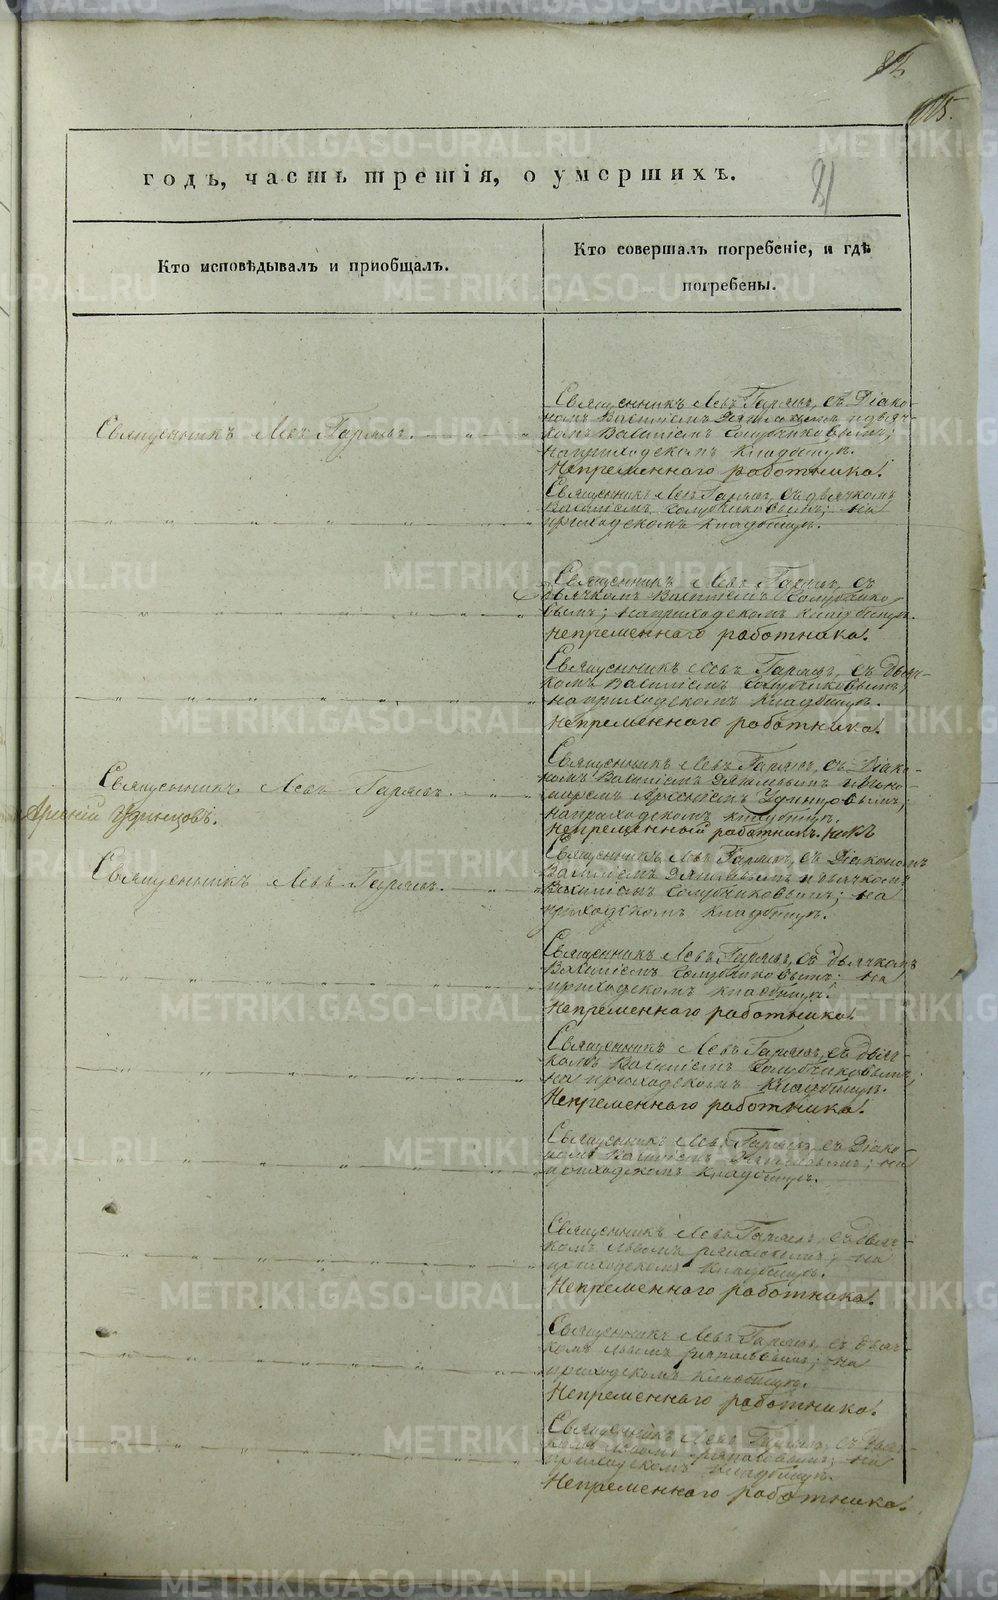 115.
81
годъ, часть третія, о умершихъ.
Кто исповѣдывалъ и приобщалъ.
Кто совершалъ погребеніе, и гдѣ
погребены.
Священникъ Левъ Гаряевъ, съ Діако-
номъ Василіемъ и дьяч-
комъ Василіемъ Голубчиковымъ;
на приходскомъ кладбищѣ.
Непременнаго работника!
Священникъ Левъ Гаряевъ.
Священникъ Левъ Гаряевъ, съ дьячкомъ
Василіемъ Голубчиковымъ; на
приходскомъ кладбищѣ.
Священникъ Левъ Гаряевъ, съ
дьячкомъ Василіемъ Голубчико-
вымъ; на приходскомъ кладбищѣ.
непременнаго работника!
Священникъ Левъ Гаряевъ, съ дьяч-
комъ Василіемъ Голубчиковымъ;
на приходскомъ кладбищѣ.
непременнаго работника!
Священникъ Левъ Гаряевъ, съ Діако-
номъ Василіемъ и поно-
маремъ Арсеніемъ Удинцовымъ;
на приходскомъ кладбищѣ.
непременный работникъ.
Священникъ Левъ Гаряевъ.
Арсеній Удинцовъ.
Священникъ Левъ Гаряевъ, съ Діакономъ
Василіемъ и дьячкомъ
Василіемъ Голубчиковымъ; на
приходскомъ кладбищѣ.
Священникъ Левъ Гаряевъ.
Священникъ Левъ Гаряевъ, съ дьячкомъ
Василіемъ Голубчиковымъ; на
приходскомъ кладбищѣ.
Непременнаго работника!
Священникъ Левъ Гаряевъ, съ дьяч-
комъ Василіемъ Голубчиковымъ;
на приходскомъ кладбищѣ.
Непременнаго работника!
Священникъ Левъ Гаряевъ, съ Діако-
номъ Василіемъ на
приходскомъ кладбищѣ.
Священникъ Левъ Гаряевъ, съ дьяч-
комъ на
приходскомъ кладбищѣ.
Непременнаго работника!
Священникъ Левъ Гаряевъ, съ дьяч-
комъ на
приходскомъ кладбищѣ.
Непременнаго работника!
Священникъ Левъ Гаряевъ, съ дьяч-
комъ на
приходскомъ кладбищѣ.
Непременнаго работника!
METRIKI.GASO-URAL.RU